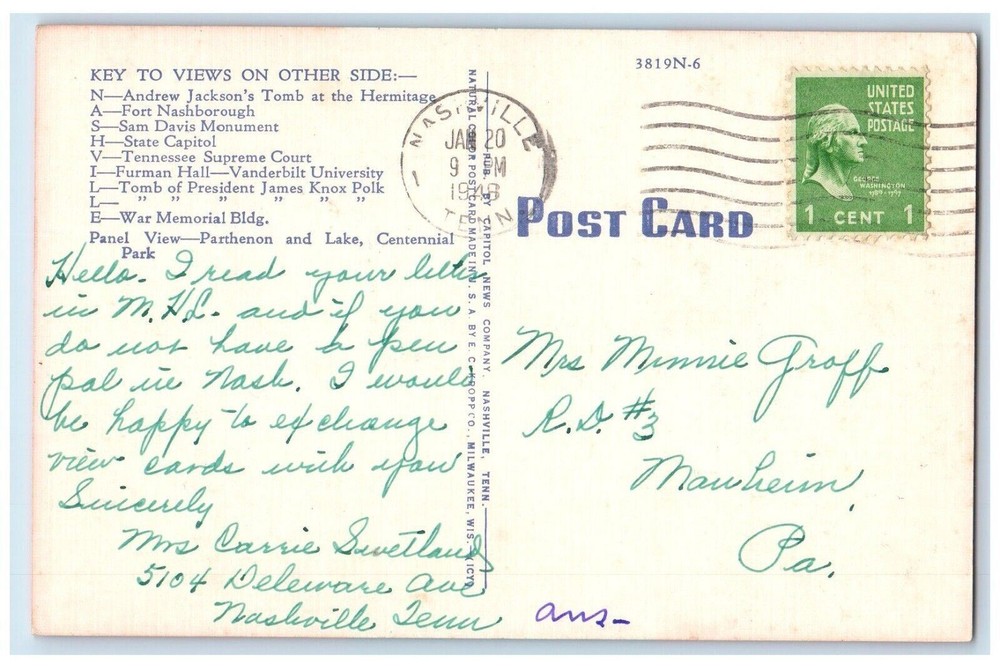 KEY TO VIEWS ON OTHER SIDE:—
N—Andrew Jackson's Tomb at the Hermitage
A—Fort Nashborough
S—Sam Davis Monument
H—State Capitol
V—Tennessee Supreme Court
I—Furman Hall—Vanderbilt University
L—Tomb of President James Knox Polk
L— " " " " " "
E—War Memorial Bldg.
Panel View—Parthenon and Lake, Centennial
Park
Hello. I read your letter
in M.H.L. and if you
do not have a pen
pal in Nash. I would
be happy to exchange
view cards with you
Sincerely
Mrs Carrie Swetland
5104 Deleware Ave
Nashville Tenn
ans-
NATURAL COLOR POST CARD MADE IN U. S. A. BY E. C. KROPP CO., MILWAUKEE, WIS.
PUB. BY CAPITOL NEWS COMPANY, NASHVILLE, TENN.
3819N-6
NASHVILLE
JAN 20
9 PM
1946
TENN
1
POST CARD
UNITED
STATES
POSTAGE
GEORGE
WASHINGTON
1789-1797
1 CENT 1
Mrs Minnie Groff
R.D. #3
Manheim,
Pa.